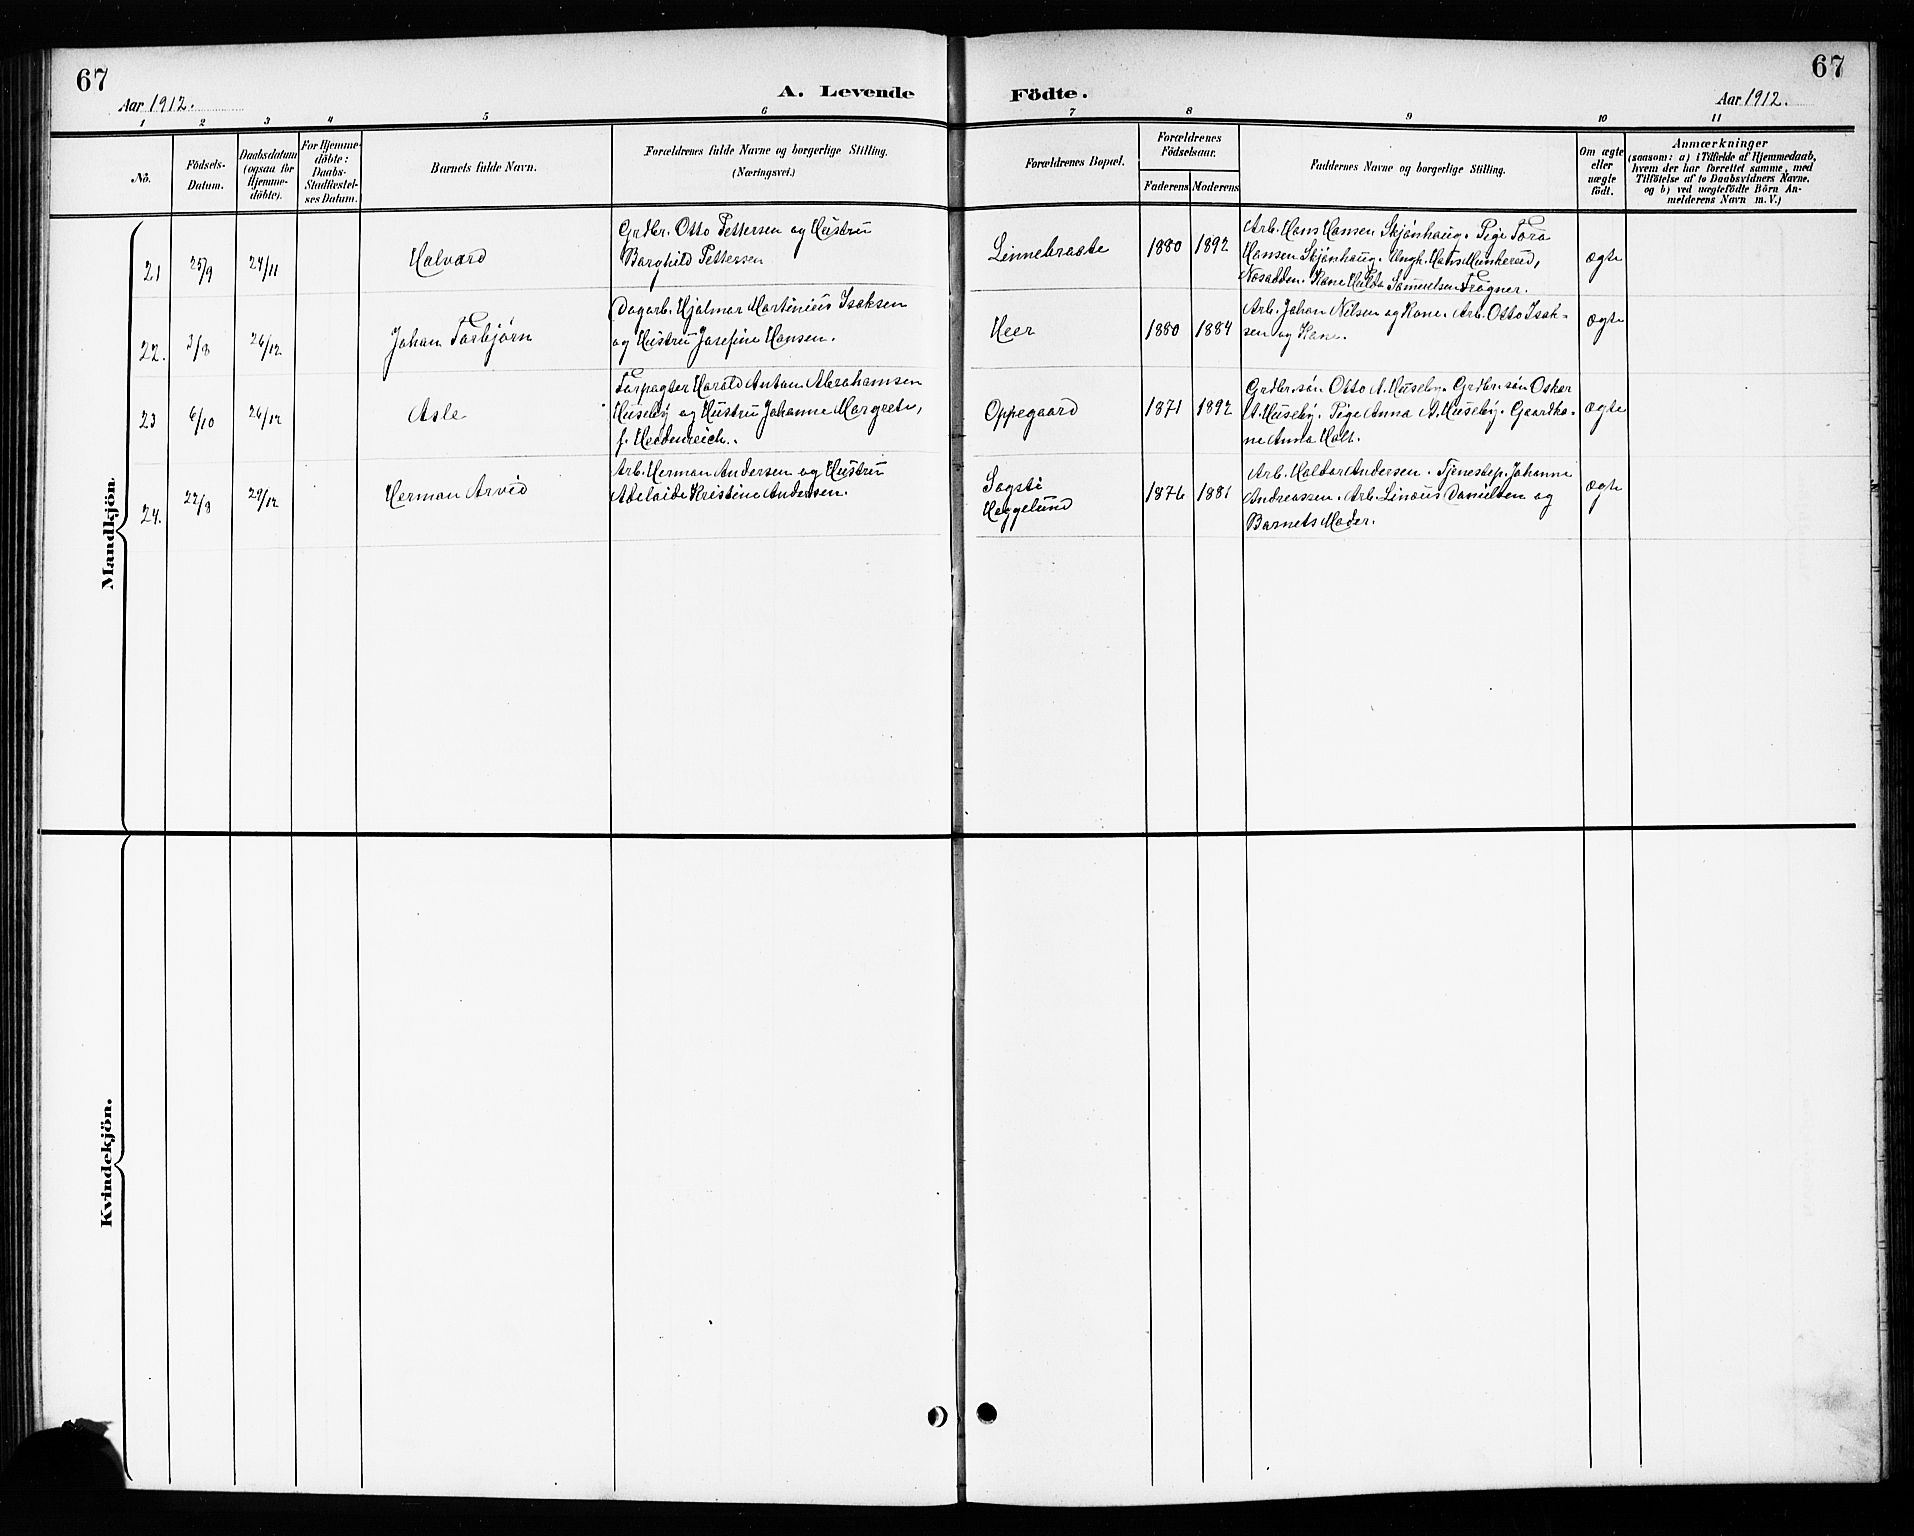 67
Aar 1912.
A. Levende
Födte.
67
Aar 1912.
1
2
3
4
5
6
7
8
9
10
11
No.
Födsels-
Datum.
Daabsdatum
(ogsaa for
Hjemme-
döbte).
For Hjemme-
döbte:
Daabs-
Stadfæstel-
ses Datum.
Barnets fulde Navn.
Forældrenes fulde Navne og borgerlige Stilling.
(Næringsvei.)
Forældrenes Bopæl.
Forældrenes
Födselsaar.
Faderens
Moderens
Faddernes Navne og borgerlige Stilling.
Om ægte
eller
uægte
födt.
Anmærkninger
(saasom: a) i Tilfælde af Hjemmedaab,
hvem der har forrettet samme, med
Tilföielse af to Daabsvidners Navne.
og b) ved uægtefödte Börn An-
melderens Navn m. V.)
Mandkjön.
21
25/9
24/11
Halvard
Grdbr. Otto Pettersen og Hustru
Borghild Pettersen
Linnebraate
1880
1892
Arb. Hans Hansen Skjønhaug. Pige Tora
Hansen Skjønhaug. Ungk. Hans Munkerud,
Nosodden. Kone Hulda Samuelsen Frogner.
ægte
22.
3/8
26/12
Johan Torbjørn
Dagarb. Hjalmar Martinius Isaksen
og Hustru Josefine Hansen.
Heer
1880
1884
Arb. Johan Nilsen og Kone. Arb. Otto Isak-
sen og Kone.
ægte
23
6/10
26/12
Asle
Forpagter Harald Anton Abrahamsen
Huseby og Hustru Johanne Margrete,
f. Heidenreich.
Oppegaard
1871
1892
Grdbr.søn Otto A. Huseby. Grdbr.søn Oskar
A. Huseby. Pige Anna A. Huseby. Gaardko-
ne Anna Holt.
ægte
24.
22/8
29/12
Herman Arvid
Arb. Herman Andersen og Hustru
Adelaide Kristine Andersen.
Sogsti
Heggelund
1876
1881
Arb. Haldor Andersen. Tjenestep. Johanne
Andreassen. Arb. Linaus Danielsen og
Barnets Moder.
ægte
Kvindekjön.